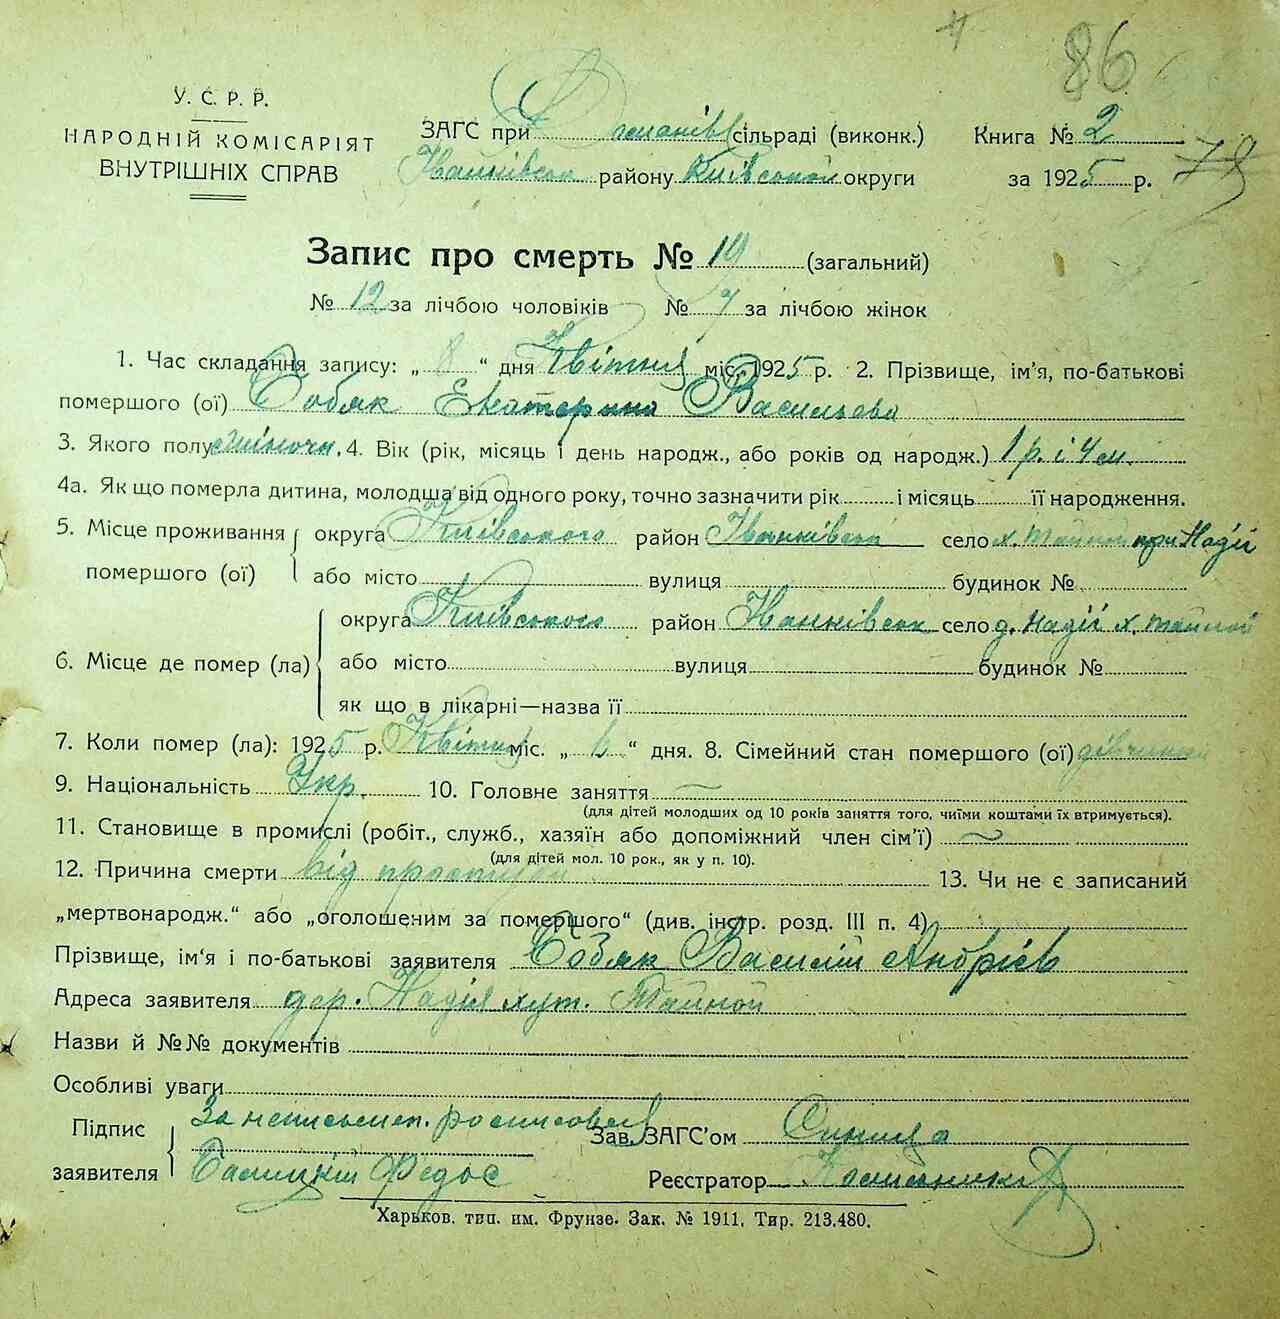 86
У. С. Р. Р.
НАРОДНІЙ КОМІСАРІЯТ
ВНУТРІШНІХ СПРАВ
ЗАГС при сільраді (виконк.)
району Київської округи
Книга № 2
за 1925 р.
78
Запис про смерть № 19 (загальний)
№ 12 за лічбою чоловіків № 7 за лічбою жінок
1. Час складання запису: „ 8 “ дня Квітня міс. 1925 р. 2. Прізвище, ім'я, по-батькові
помершого (ої) Собяк Екатерина Васильова
3. Якого полу жіночи. 4. Вік (рік, місяць і день народж., або років од народж.) 1 р. і 4 м.
4а. Як що померла дитина, молодша від одного року, точно зазначити рік і місяць її народження.
5. Місце проживання помершого (ої)
округа Київського район Іванківськ село х. Тайной при Надії
або місто вулиця будинок №
6. Місце де помер (ла)
округа Київського район Іванківськ село д. Надії х. Тайной
або місто вулиця будинок №
як що в лікарні—назва її
7. Коли помер (ла): 1925 р. Квітня міс. „ 6 “ дня. 8. Сімейний стан помершого (ої)
9. Національність Укр. 10. Головне заняття
(для дітей молодших од 10 років заняття того, чиїми коштами їх втримується).
11. Становище в промислі (робіт., служб., хазяїн або допоміжний член сім'ї)
(для дітей мол. 10 рок., як у п. 10).
12. Причина смерти від простуди 13. Чи не є записаний
„мертвонародж.“ або „оголошеним за помершого“ (див. інстр. розд. III п. 4)
Прізвище, ім'я і по-батькові заявителя Собяк Василій Андрієв
Адреса заявителя дер. Надія хут. Тайной
Назви й №№ документів
Особливі уваги
Підпис заявителя
За неписьмен. росписовся
Федос
Зав. ЗАГС'ом Синица
Реєстратор
Харьков. тип. им. Фрунзе. Зак. № 1911. Тир. 213.480.